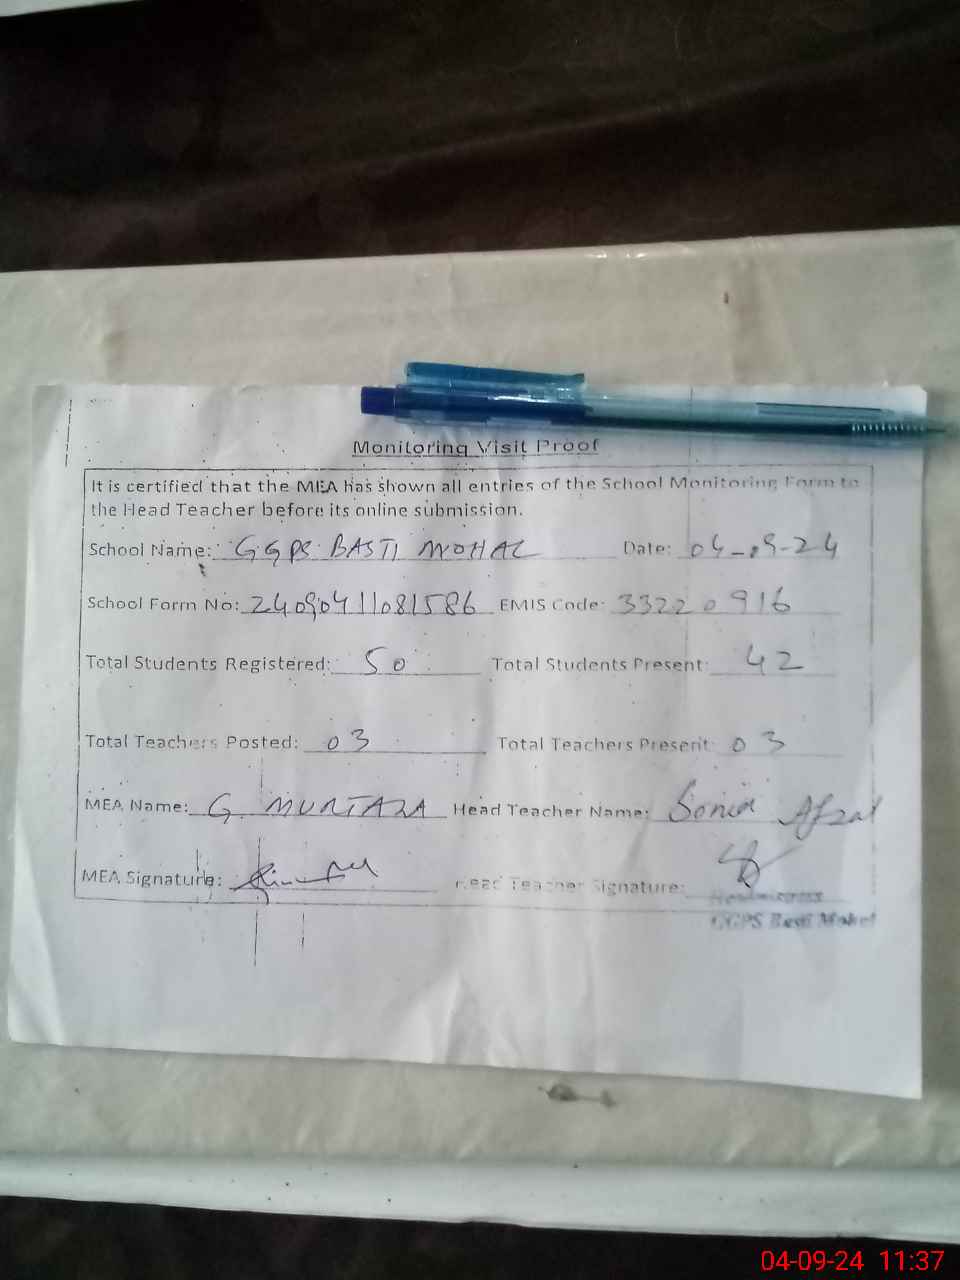 Monitoring Visit Proof
It is certified that the MEA has shown all entries of the School Monitoring Form to
the Head Teacher before its online submission.
School Name: GGPS BASTI MOHAL Date: 04-09-24
School Form No: 24090411081586 EMIS Code: 33220916
Total Students Registered: 50 Total Students Present: 42
Total Teachers Posted: 03 Total Teachers Present: 03
MEA Name: G. MURTAZA Head Teacher Name: Sonia Afzal
MEA Signature: Head Teacher Signature:
Headmistress
GGPS Basti Mohal
04-09-24 11:37